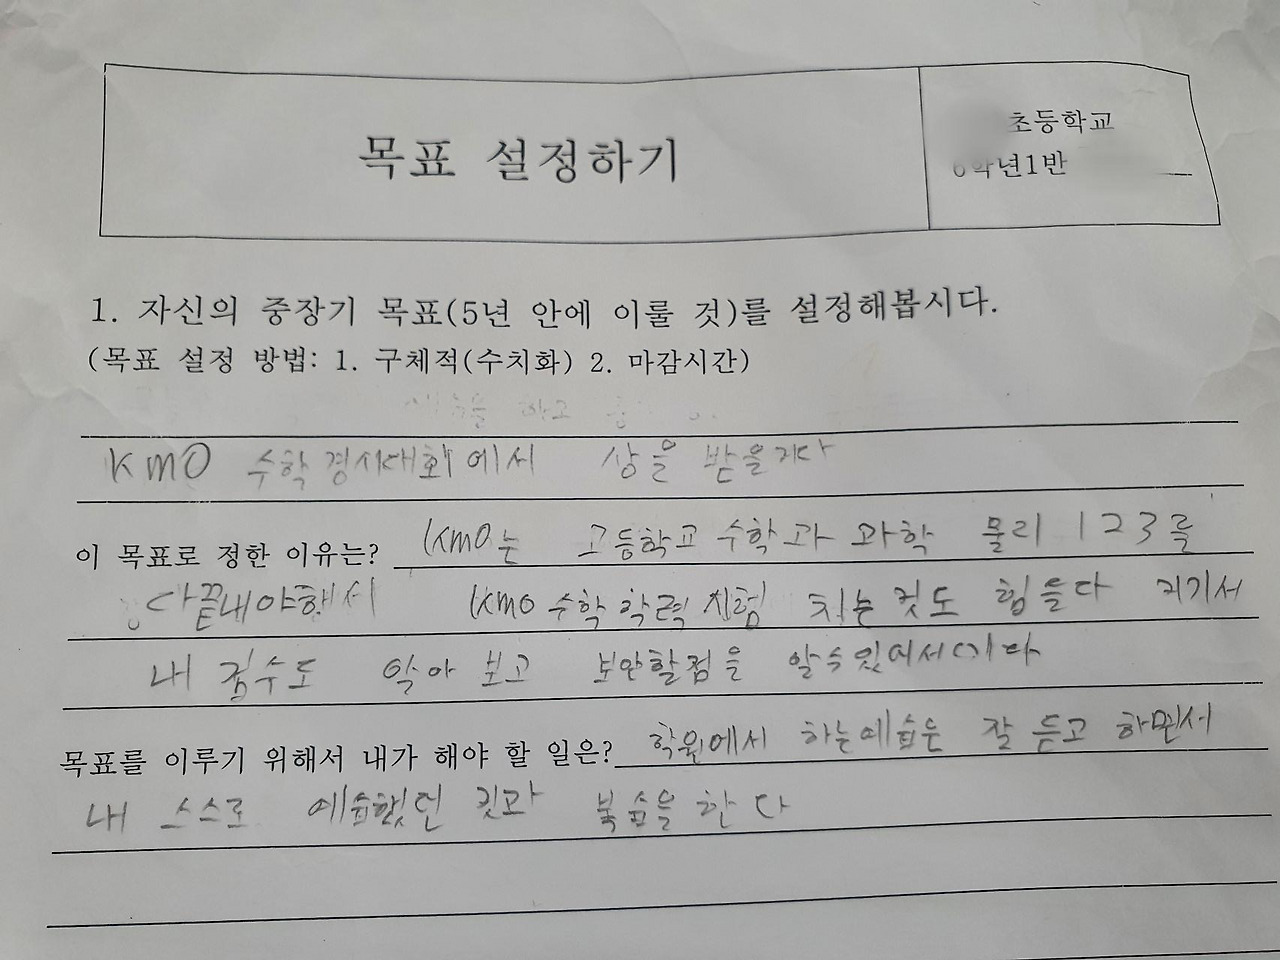 목표 설정하기
초등학교
학년1반
1. 자신의 중장기 목표(5년 안에 이룰 것)를 설정해봅시다.
(목표 설정 방법: 1. 구체적(수치화) 2. 마감시간)
KMO 수학경시대회에서 상을 받을거다
이 목표로 정한 이유는? KMO는 고등학교 수학과 과학 물리 1 2 3를
다끝내야해서 KMO 수학 학력 시험 치는것도 힘들다 거기서
내 점수도 알아 보고 보안할점을 알수있어서이다
목표를 이루기 위해서 내가 해야 할 일은? 학원에서 하는예습은 잘 듣고 하면서
내 스스로 예습했던 것과 복습을 한다